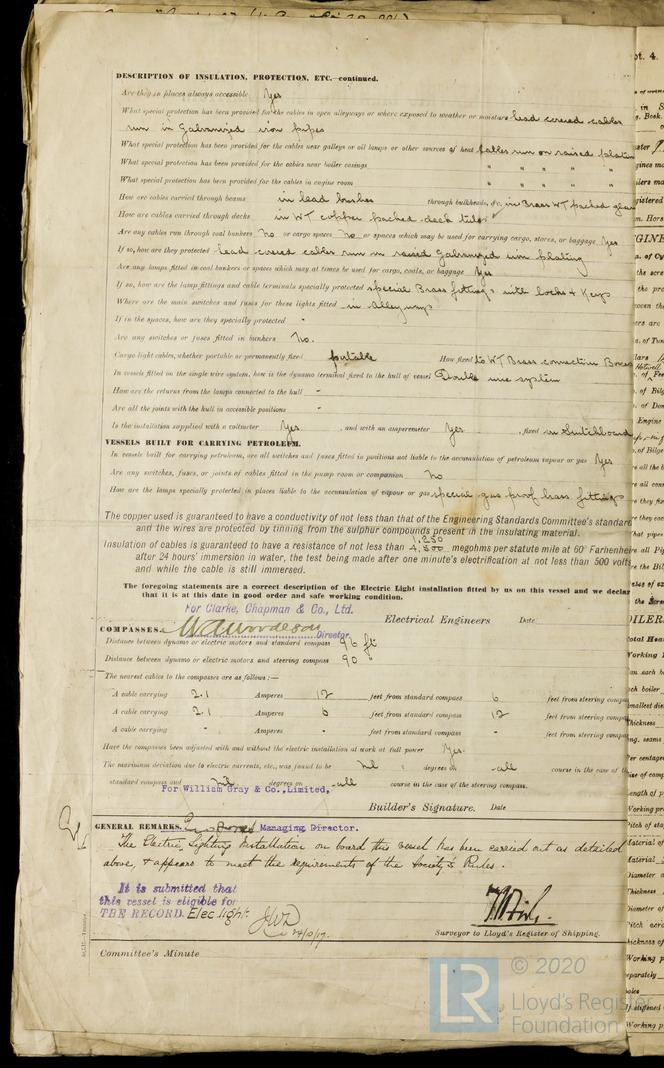 DESCRIPTION OF INSULATION, PROTECTION, ETC.—continued.
Are they in places always accessible Yes
What special protection has been provided for the cables in open alleyways or where exposed to weather or moisture lead covered cables
run in galvanized iron pipes
What special protection has been provided for the cables near galleys or oil lamps or other sources of heat Cables run on raised plating
What special protection has been provided for the cables near boiler casings " " " " "
What special protection has been provided for the cables in engine room " " " " "
How are cables carried through beams in lead bushes through bulkheads, &c. in Brass W.T. packed glands
How are cables carried through decks in W.T. copper packed deck tubes
Are any cables run through coal bunkers No or cargo spaces No or spaces which may be used for carrying cargo, stores, or baggage Yes
If so, how are they protected lead covered cables run on raised Galvanized iron plating
Are any lamps fitted in coal bunkers or spaces which may at times be used for cargo, coals, or baggage Yes
If so, how are the lamp fittings and cable terminals specially protected special Brass fittings with locks & keys
Where are the main switches and fuses for these lights fitted in alleyways
If in the spaces, how are they specially protected -
Are any switches or fuses fitted in bunkers No.
Cargo light cables, whether portable or permanently fixed portable How fixed to W.T. Brass connection Boxes
In vessels fitted on the single wire system, how is the dynamo terminal fixed to the hull of vessel Double wire system
How are the returns from the lamps connected to the hull -
Are all the joints with the hull in accessible positions -
Is the installation supplied with a voltmeter Yes, and with an amperemeter Yes, fixed on Switchboard
VESSELS BUILT FOR CARRYING PETROLEUM.
In vessels built for carrying petroleum, are all switches and fuses fitted in positions not liable to the accumulation of petroleum vapour or gas Yes
Are any switches, fuses, or joints of cables fitted in the pump room or companion No
How are the lamps specially protected in places liable to the accumulation of vapour or gas special gas proof brass fittings
The copper used is guaranteed to have a conductivity of not less than that of the Engineering Standards Committee's standard
and the wires are protected by tinning from the sulphur compounds present in the insulating material.
1,250
Insulation of cables is guaranteed to have a resistance of not less than 4,500 megohms per statute mile at 60° Farhenheit
after 24 hours' immersion in water, the test being made after one minute's electrification at not less than 500 volts
and while the cable is still immersed.
The foregoing statements are a correct description of the Electric Light installation fitted by us on this vessel and we declare
that it is at this date in good order and safe working condition.
For Clarke, Chapman & Co., Ltd.
Electrical Engineers Date
Director.
COMPASSES.
Distance between dynamo or electric motors and standard compass 96 ft
Distance between dynamo or electric motors and steering compass 90 "
The nearest cables to the compasses are as follows:—
A cable carrying 2.1 Amperes 12 feet from standard compass 6 feet from steering compass
A cable carrying 2.1 Amperes 6 feet from standard compass 12 feet from steering compass
A cable carrying - Amperes - feet from standard compass - feet from steering compass
Have the compasses been adjusted with and without the electric installation at work at full power Yes.
The maximum deviation due to electric currents, etc., was found to be Nil degrees on all course in the case of the
standard compass and Nil degrees on all course in the case of the steering compass.
For William Gray & Co., Limited,
Builder's Signature. Date
GENERAL REMARKS.
Managing Director.
The Electric Lighting Installation on board this vessel has been carried out as detailed
above, & appears to meet the requirements of the Society's Rules.
It is submitted that
this vessel is eligible for
THE RECORD. Elec light.
Surveyor to Lloyd's Register of Shipping.
Committee's Minute
© 2020
LR Lloyd's Register
Foundation